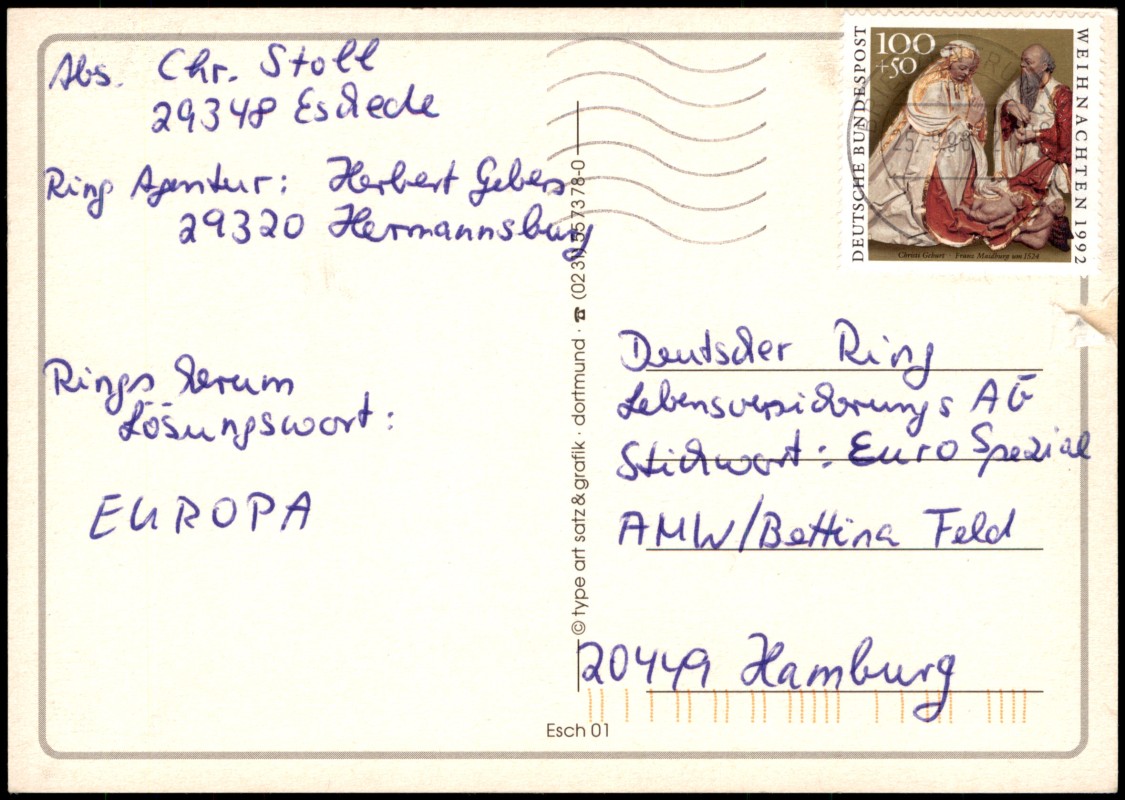 Abs. Chr. Stoll
29348 Eschede
Ring Agentur: Herbert Gebers
29320 Hermannsburg
Rings herum
Lösungswort:
EUROPA
© type art satz & grafik · dortmund · ☎ (0231) 557378-0
Esch 01
100
+50
DEUTSCHE BUNDESPOST
WEIHNACHTEN 1992
Christi Geburt · Franz Maidburg um 1524
Deutscher Ring
Lebensversicherungs AG
Stichwort: Euro Spezial
AMW/Bettina Feld
20449 Hamburg